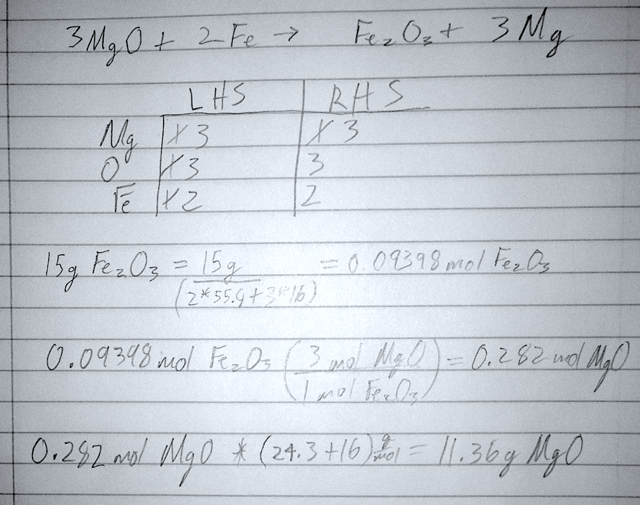 3MgO + 2Fe → Fe₂O₃ + 3Mg
LHS RHS
Mg 1 3 1 3
O 1 3 3
Fe 1 2 2
15g Fe₂O₃ = 15g / (2*55.9+3*16) = 0.09398 mol Fe₂O₃
0.09398 mol Fe₂O₃ (3 mol MgO / 1 mol Fe₂O₃) = 0.282 mol MgO
0.282 mol MgO * (24.3+16) g/mol = 11.36g MgO